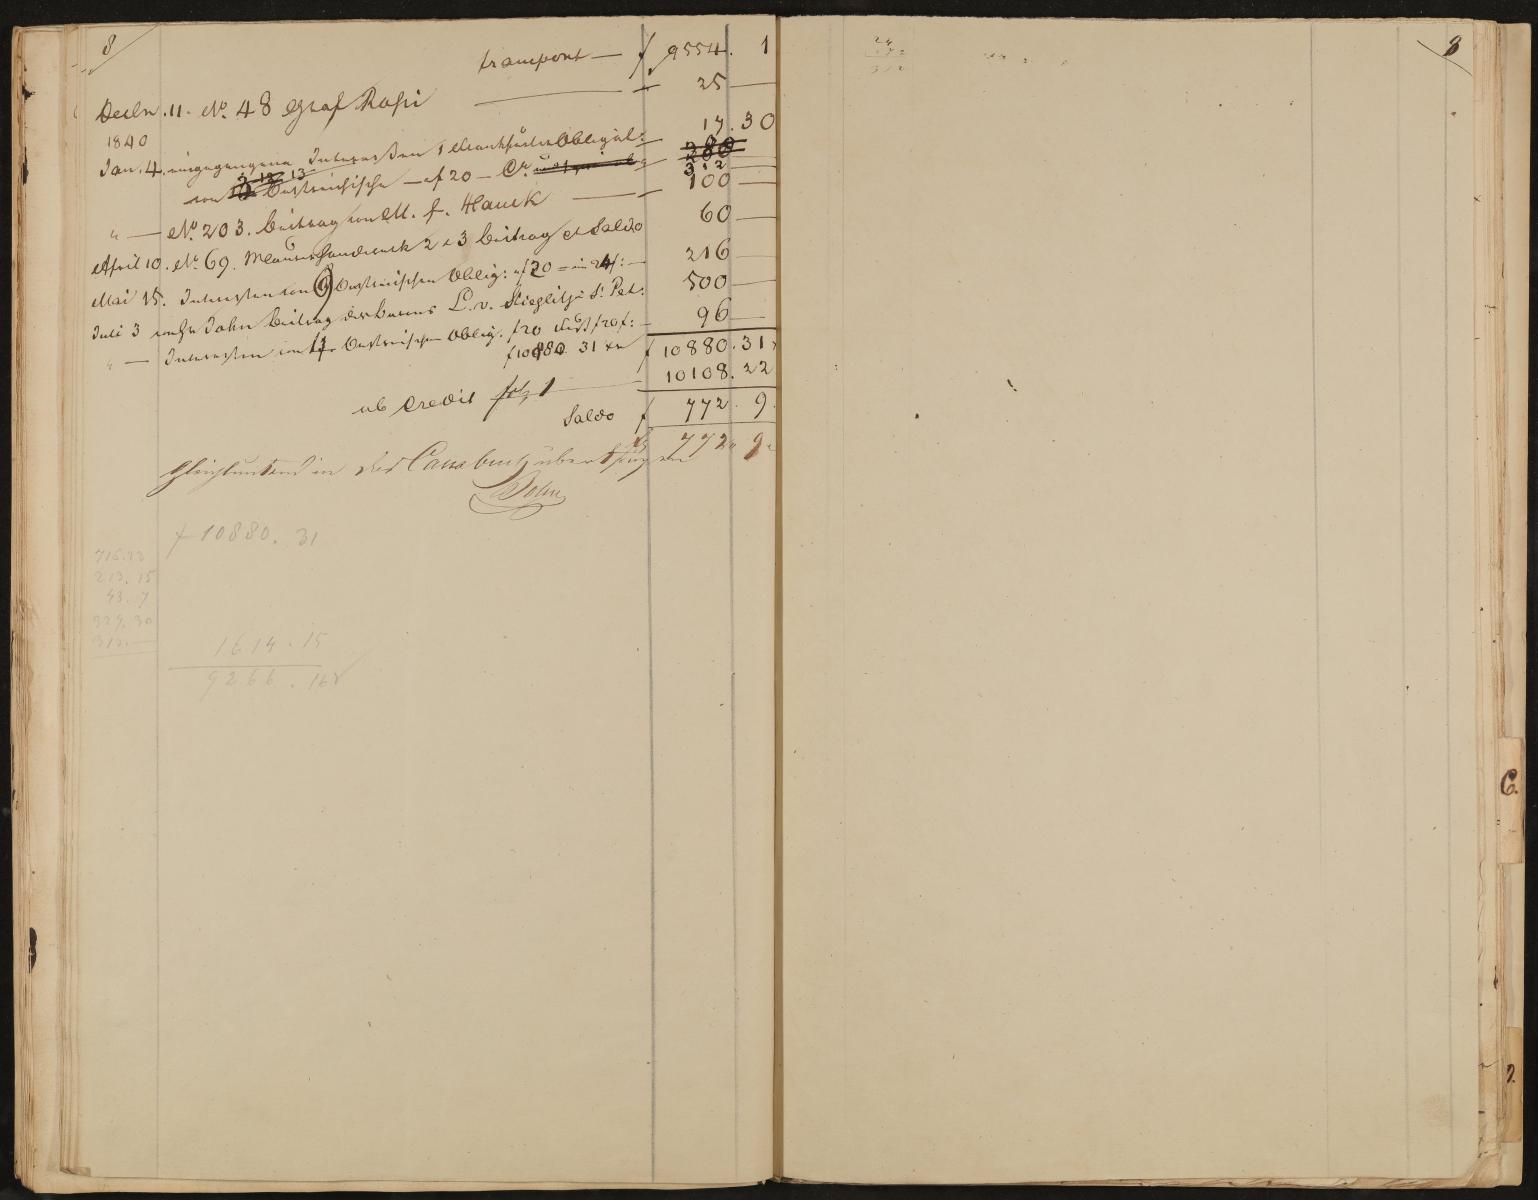 8
transport — f 9554. 1
Decbr. 11. No. 48 Graf Rossi — 25 —
1840
Jan. 4. eingegangene Interessen 1 Frankfurter Obligat: 17. 30
von 13 Oestreichische — af 20 — Cr. 312 —
" — No. 203. Beitrag von M. f. Hauck — 100 —
April 10. No. 69. Beitrag et Saldo 60 —
Mai 15. Interessen von 9 Oestreichischen Oblig: af 20 = in 24f: — 216 —
Juli 3 John Beitrag des Barons L. v. Stieglitz St. Pet: 500 —
" — Interessen von 4 Oestreichischen Oblig. f 20 96 —
f 10880 31 xr f 10880. 31
ab Credit fol. 1 — 10108. 22
Saldo f 772. 9.
f 772 " 9 "
Gleichlautend in das Cassabuch übertragen
John
f 10880. 31
716. 23
213. 15
43. 7
329. 30
312. —
1614. 15
9266. 16
24
312
8
C.